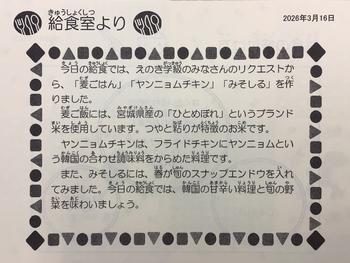 きゅうしょくしつ
給食室より
2026年3月16日
今日の給食では、えのき学級のみなさんのリクエストか
ら、「麦ごはん」「ヤンニョムチキン」「みそしる」を作
りました。
麦ご飯には、宮城県産の「ひとめぼれ」というブランド
米を使用しています。つやと粘りが特徴のお米です。
ヤンニョムチキンは、フライドチキンにヤンニョムとい
う韓国の合わせ調味料をからめた料理です。
また、みそしるには、春が旬のスナップエンドウを入れ
てみました。今日の給食では、韓国の甘辛い料理と旬の野
菜を味わいましょう。